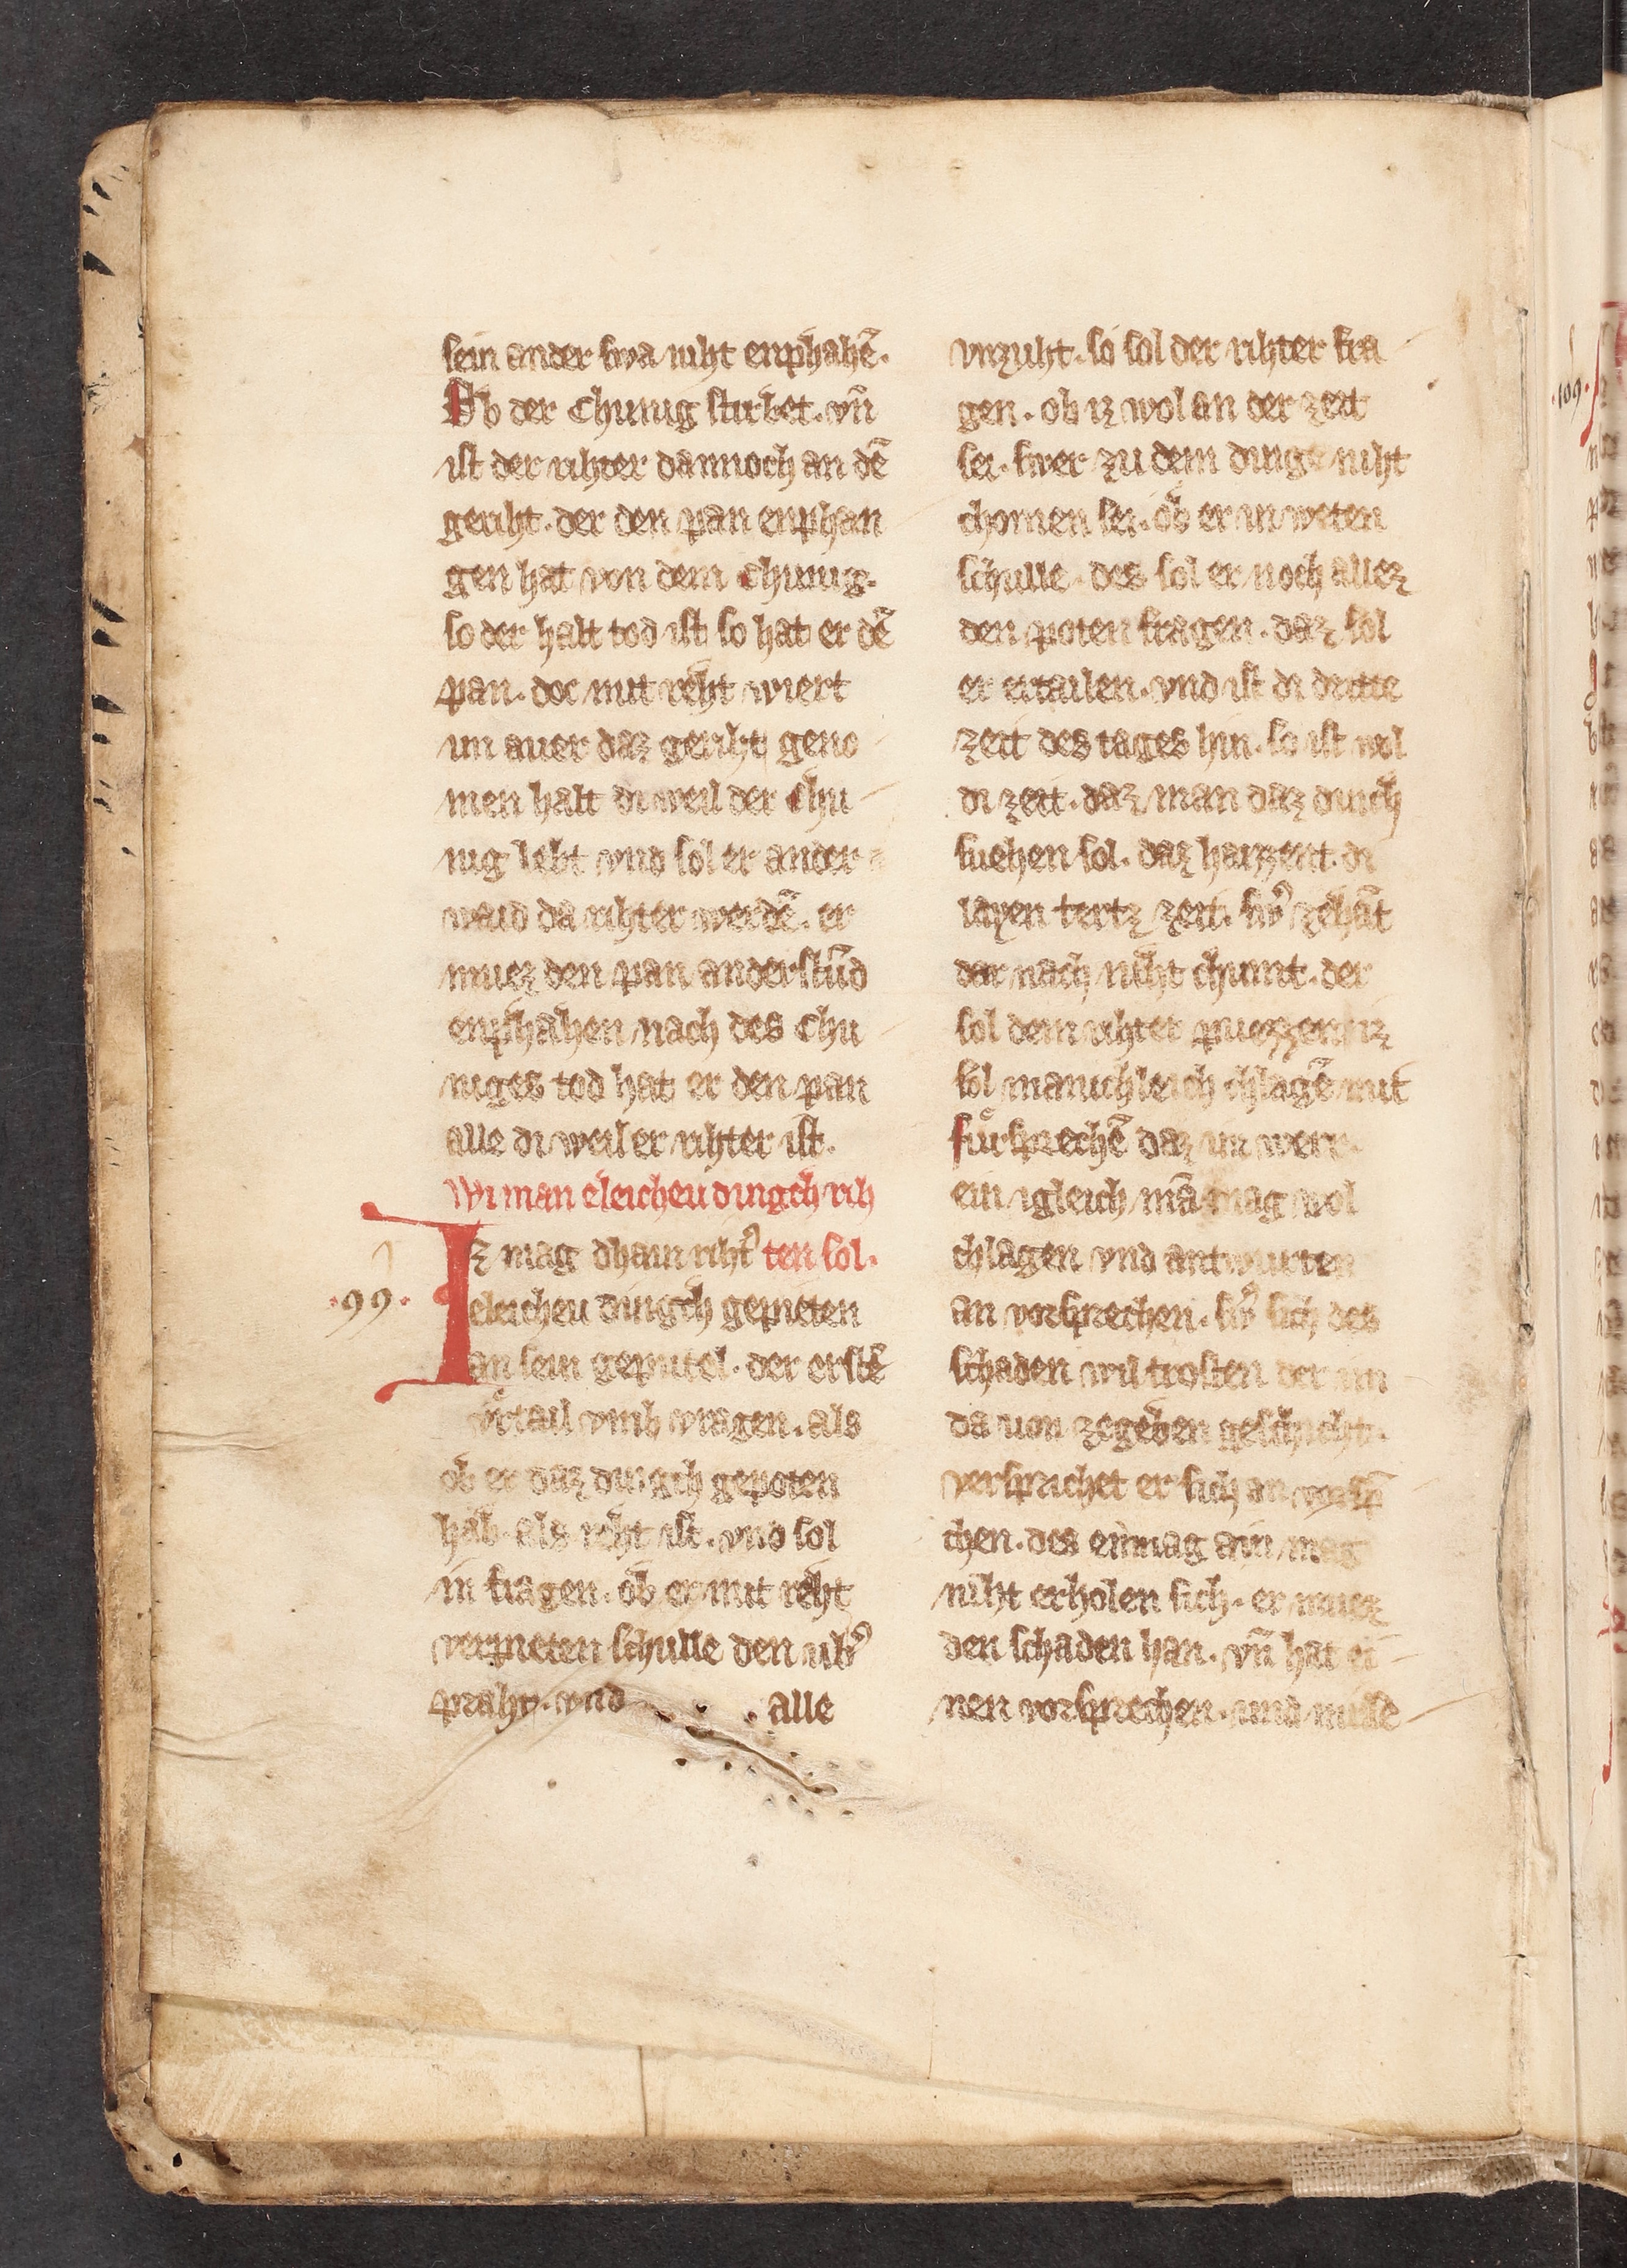 sein ander swa niht enphahē.
Ob der Chunig stirbet. vn̄
ist der rihter dannoch an dē
geriht. der den pan enphan
gen hat von dem Chunig.
so der halt tod ist so hat er dē
pan. doc mit reht wiert
im auer daz geriht geno
men halt di weil der Chu
nig lebt vnd sol er ander
waid da rihter werdē. er
muez den pan anderstūd
enphahen nach des Chu
niges tod hat er den pan
alle di weil er rihter ist.
Wi man eleicheu dingch rih
ten sol.
Iz mag dhain riht͛
·99·
eleicheu dingch gepieten
an sein geputel. der erstē
vrtail vmb vragen. als
ob er daz dingch gepoten
hab. als reht ist. vnd sol
in fragen. ob er mit reht
verpieten schulle den vb͛
praht. vnd alle
vnzuht. so sol der rihter fra
gen. ob iz wol an der zeit
sei. swer zu dem dinge niht
chomen sei. ob er im weten
schulle. des sol er noch allez
den poten fragen. daz sol
er ertailen. vnd ist di dritte
zeit des tages hin. so ist wol
di zeit. daz man daz durch
suehen sol. daz haizzent. di
layen tertz zeit. sw͛ zehāt
dar nach niht chumt. der
sol dem rihter puezzen iz
sol manichleich chlagē mit
fürsprechē daz im werr.
ein igleich mā mag wol
chlagen vnd antwurten
an vorsprechen. sw͛ sich des
schaden wil trosten der im
da uon zegeben geschicht.
versprichet er sich an vorsp̄
chen. des enmag ain mag
niht erholen sich. er muez
den schaden han. vn̄ hat ei
nen vorsprechen. vnd